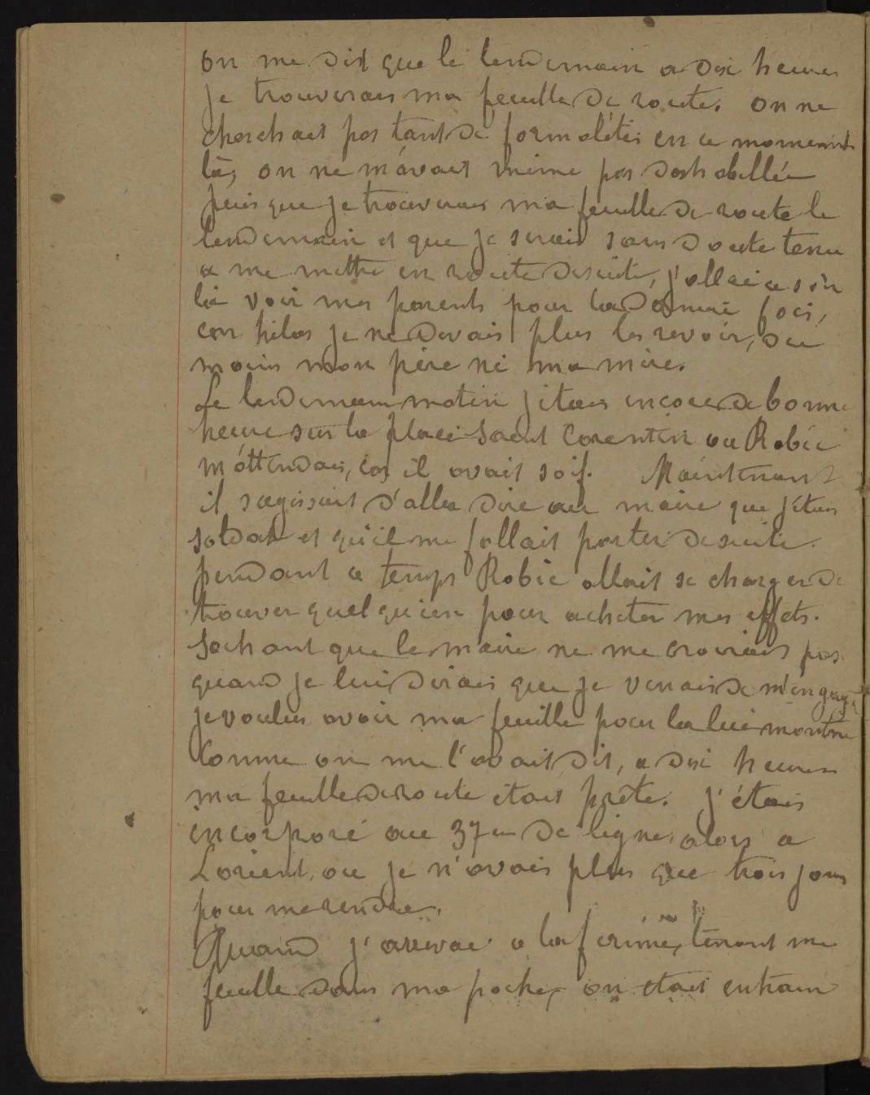 on me dit que le lendemain a dix heures
je trouverais ma feuille de route. on ne
cherchait pas tant de formalités en ce moment
là, on ne m'avait même pas déshabillé
puis que je trouverais ma feuille de route le
lendemain et que je serais sans doute tenu
a me mettre en route desuite, j'allai ce soir
là voir mes parents pour la dernière fois,
car hélas je ne devais plus les revoir, du
moins mon père ni ma mère.
Le lendemain matin j'étais encore de bonne
heure sur la place Saint Corentin ou Robic
m'attendait, car il avait soif. Maintenant
il sagissait d'aller dire au maire que j'étais
soldat et qu'il me fallait partir desuite.
pendant ce temps Robic allait se charger de
trouver quelqu'un pour acheter mes effets.
Sachant que le maire ne me croirait pas
quand je lui dirais que je venais de m'engager
je voulus avoir ma feuille pour la lui montrer
Comme on me l'avait dit, a dix heures
ma feuille de route était prête. j'étais
encorporé au 37eme de ligne alors a
Lorient, ou je n'avais plus que trois jours
pour me rendre.
Quand j'arrivai a la ferme, tenant ma
feuille dans ma poche, on était entrain